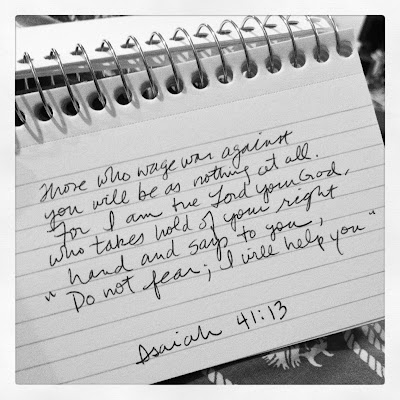 Those who wage war against
you will be as nothing at all.
For I am the Lord your God,
who takes hold of your right
hand and says to you,
"Do not fear; I will help you"
Isaiah 41:13